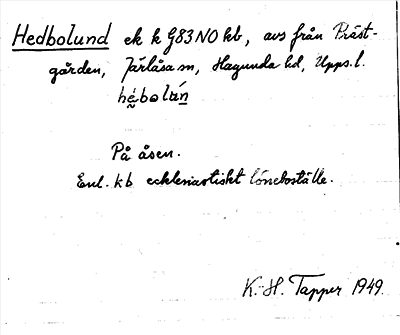 Hedbolund ek k G83NO kb, avs från Präst-
gården, Järlåsa sn, Hagunda hd, Upps.l.
hèbolún
På åsen.
Enl. kb ecklesiastiskt löneboställe.
K.-H. Tapper 1949.